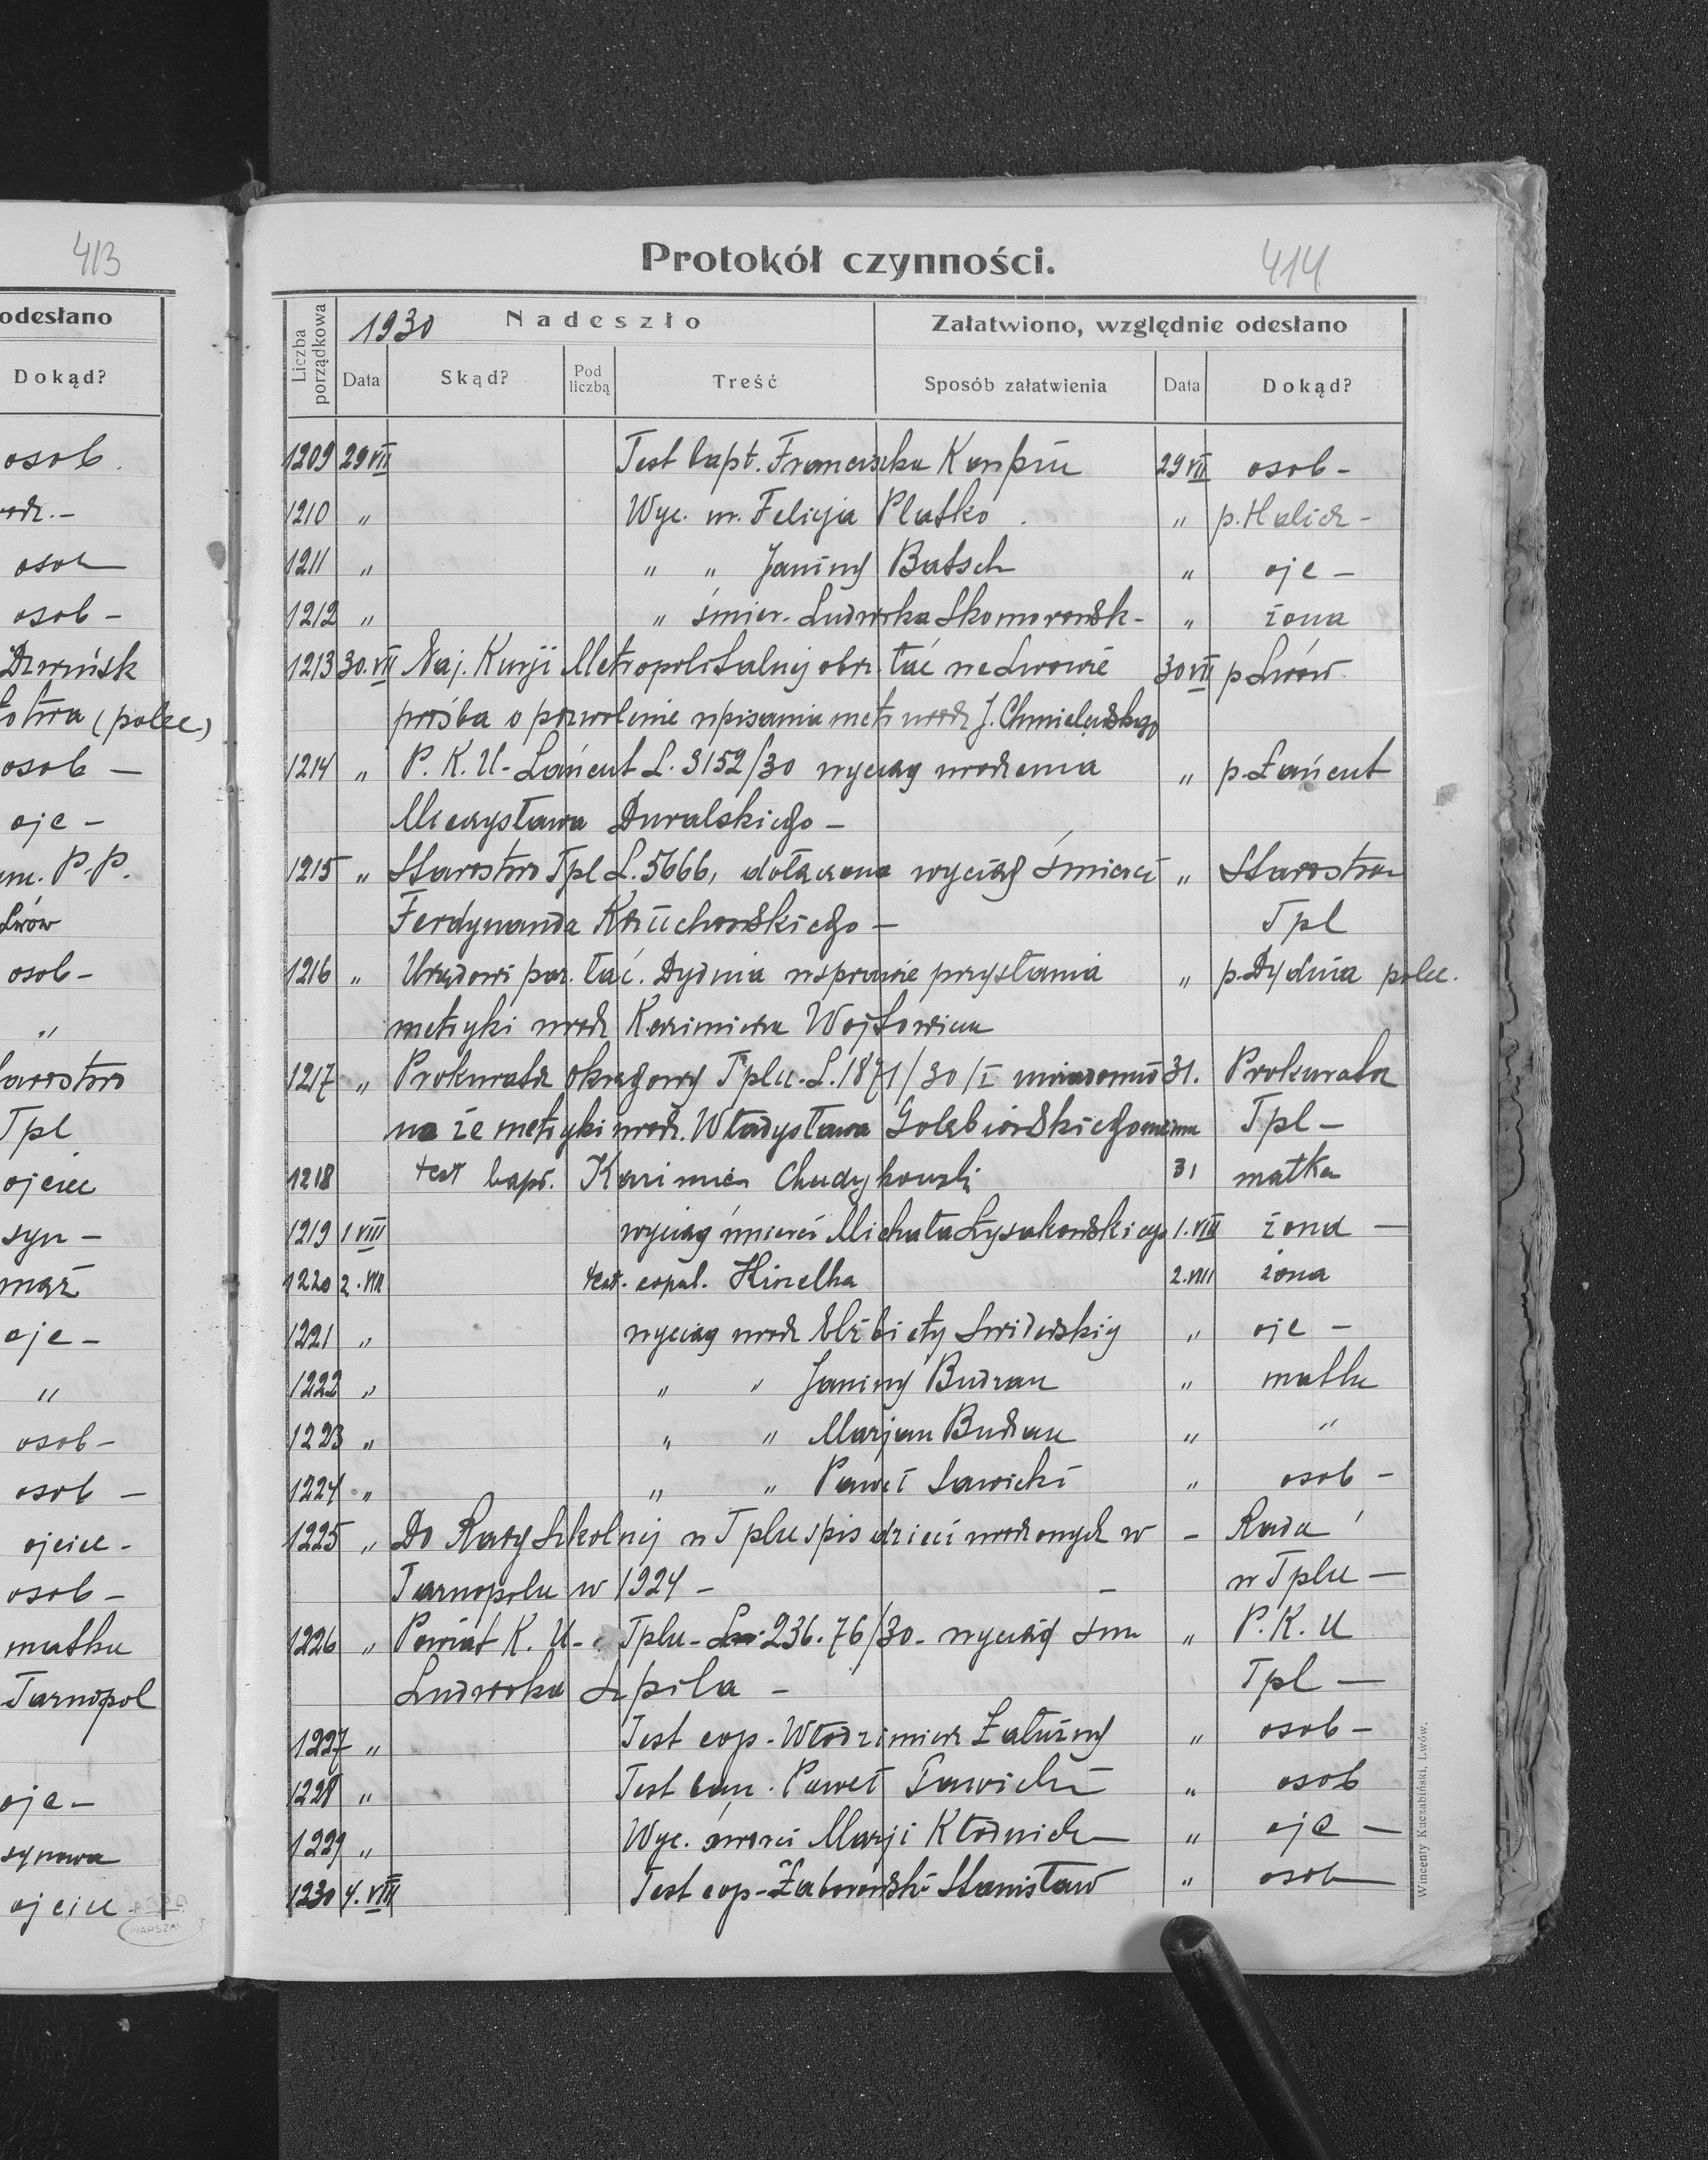 413
odesłano
Dokąd?
osob.
osob
osob -
Łotwa (polec)
osob —
oje -
Lwów
osob -
"
Tpl
ojciec
syn -
mąż
oje -
"
osob -
osob —
ojciec -
osob -
matka
Tarnopol
oje -
synowa
ojciec
WARSZA
Protokół czynności.
414
Liczba porządkowa
1930 Nadeszło
Załatwiono, względnie odesłano
Data Skąd? Pod liczbą Treść Sposób załatwienia Data Dokąd?
1209 29 VII Test bapt. Franciszka 29 VII osob -
1210 " Wyc. ur. Felicja Platko " p. Halicz -
1211 " " " Janiny Batsch " ojc -
1212 " " śmier. Ludwika Skomorowsk - " żona
1213 30.VII Naj. Kurji Metropolitalnej obrz. łać we Lwowie 30 VII p Lwów
prośba o pozwolenie wpisania metr urodz J. Chmielewskiego
1214 " P. K. U - Łańcut L. 3152/30 wyciąg urodzenia " p. Łańcut
Mieczysława Duralskiego -
1215 " Starostwo Tpl L. 5666, dołączono wyciąg śmierci " Starostwo
Ferdynanda Tpl
1216 " Urzędowi par. łać. Dydnia w sprawie przysłania " p. Dydnia polec.
metryki urodz Kazimierza Wojtowicza
1217 " Prokurator okręgowy Tplu - L. 1871/30/I 31. Prokurator
że metryki urodz. Władysława Gołębiowskiego niema Tpl -
1218 test bapt. Kazimierz Chudykowski 31 matka
1219 1 VIII wyciąg śmierci Michała Łysakowskiego 1.VIII żona —
1220 2.VIII test. copul. Hinelka 2.VIII żona
1221 " wyciąg urodz Elżbiety Świderskiej " ojc -
1222 " " " Janiny Budzan " matka
1223 " " " Marjan Budzan " "
1224 " " " Paweł Sawicki " osob -
1225 " Do Rady Szkolnej w Tplu spis dzieci urodzonych w - Rada
Tarnopolu w 1924 - - w Tplu —
1226 " Powiat K. U - Tplu - 236.76/30 - wyciąg śm " P. K. U
Ludwika Szpila - Tpl —
1227 " Test cop - Włodzimierz Załużny " osob -
1228 " Test Paweł Sawicki " osob
1229 " Wyc. śmierci Marji Kłodnick " ojc —
1230 4.VIII Test cop - Zaborowski Stanisław " osob
Wincenty Kuczabiński, Lwów.